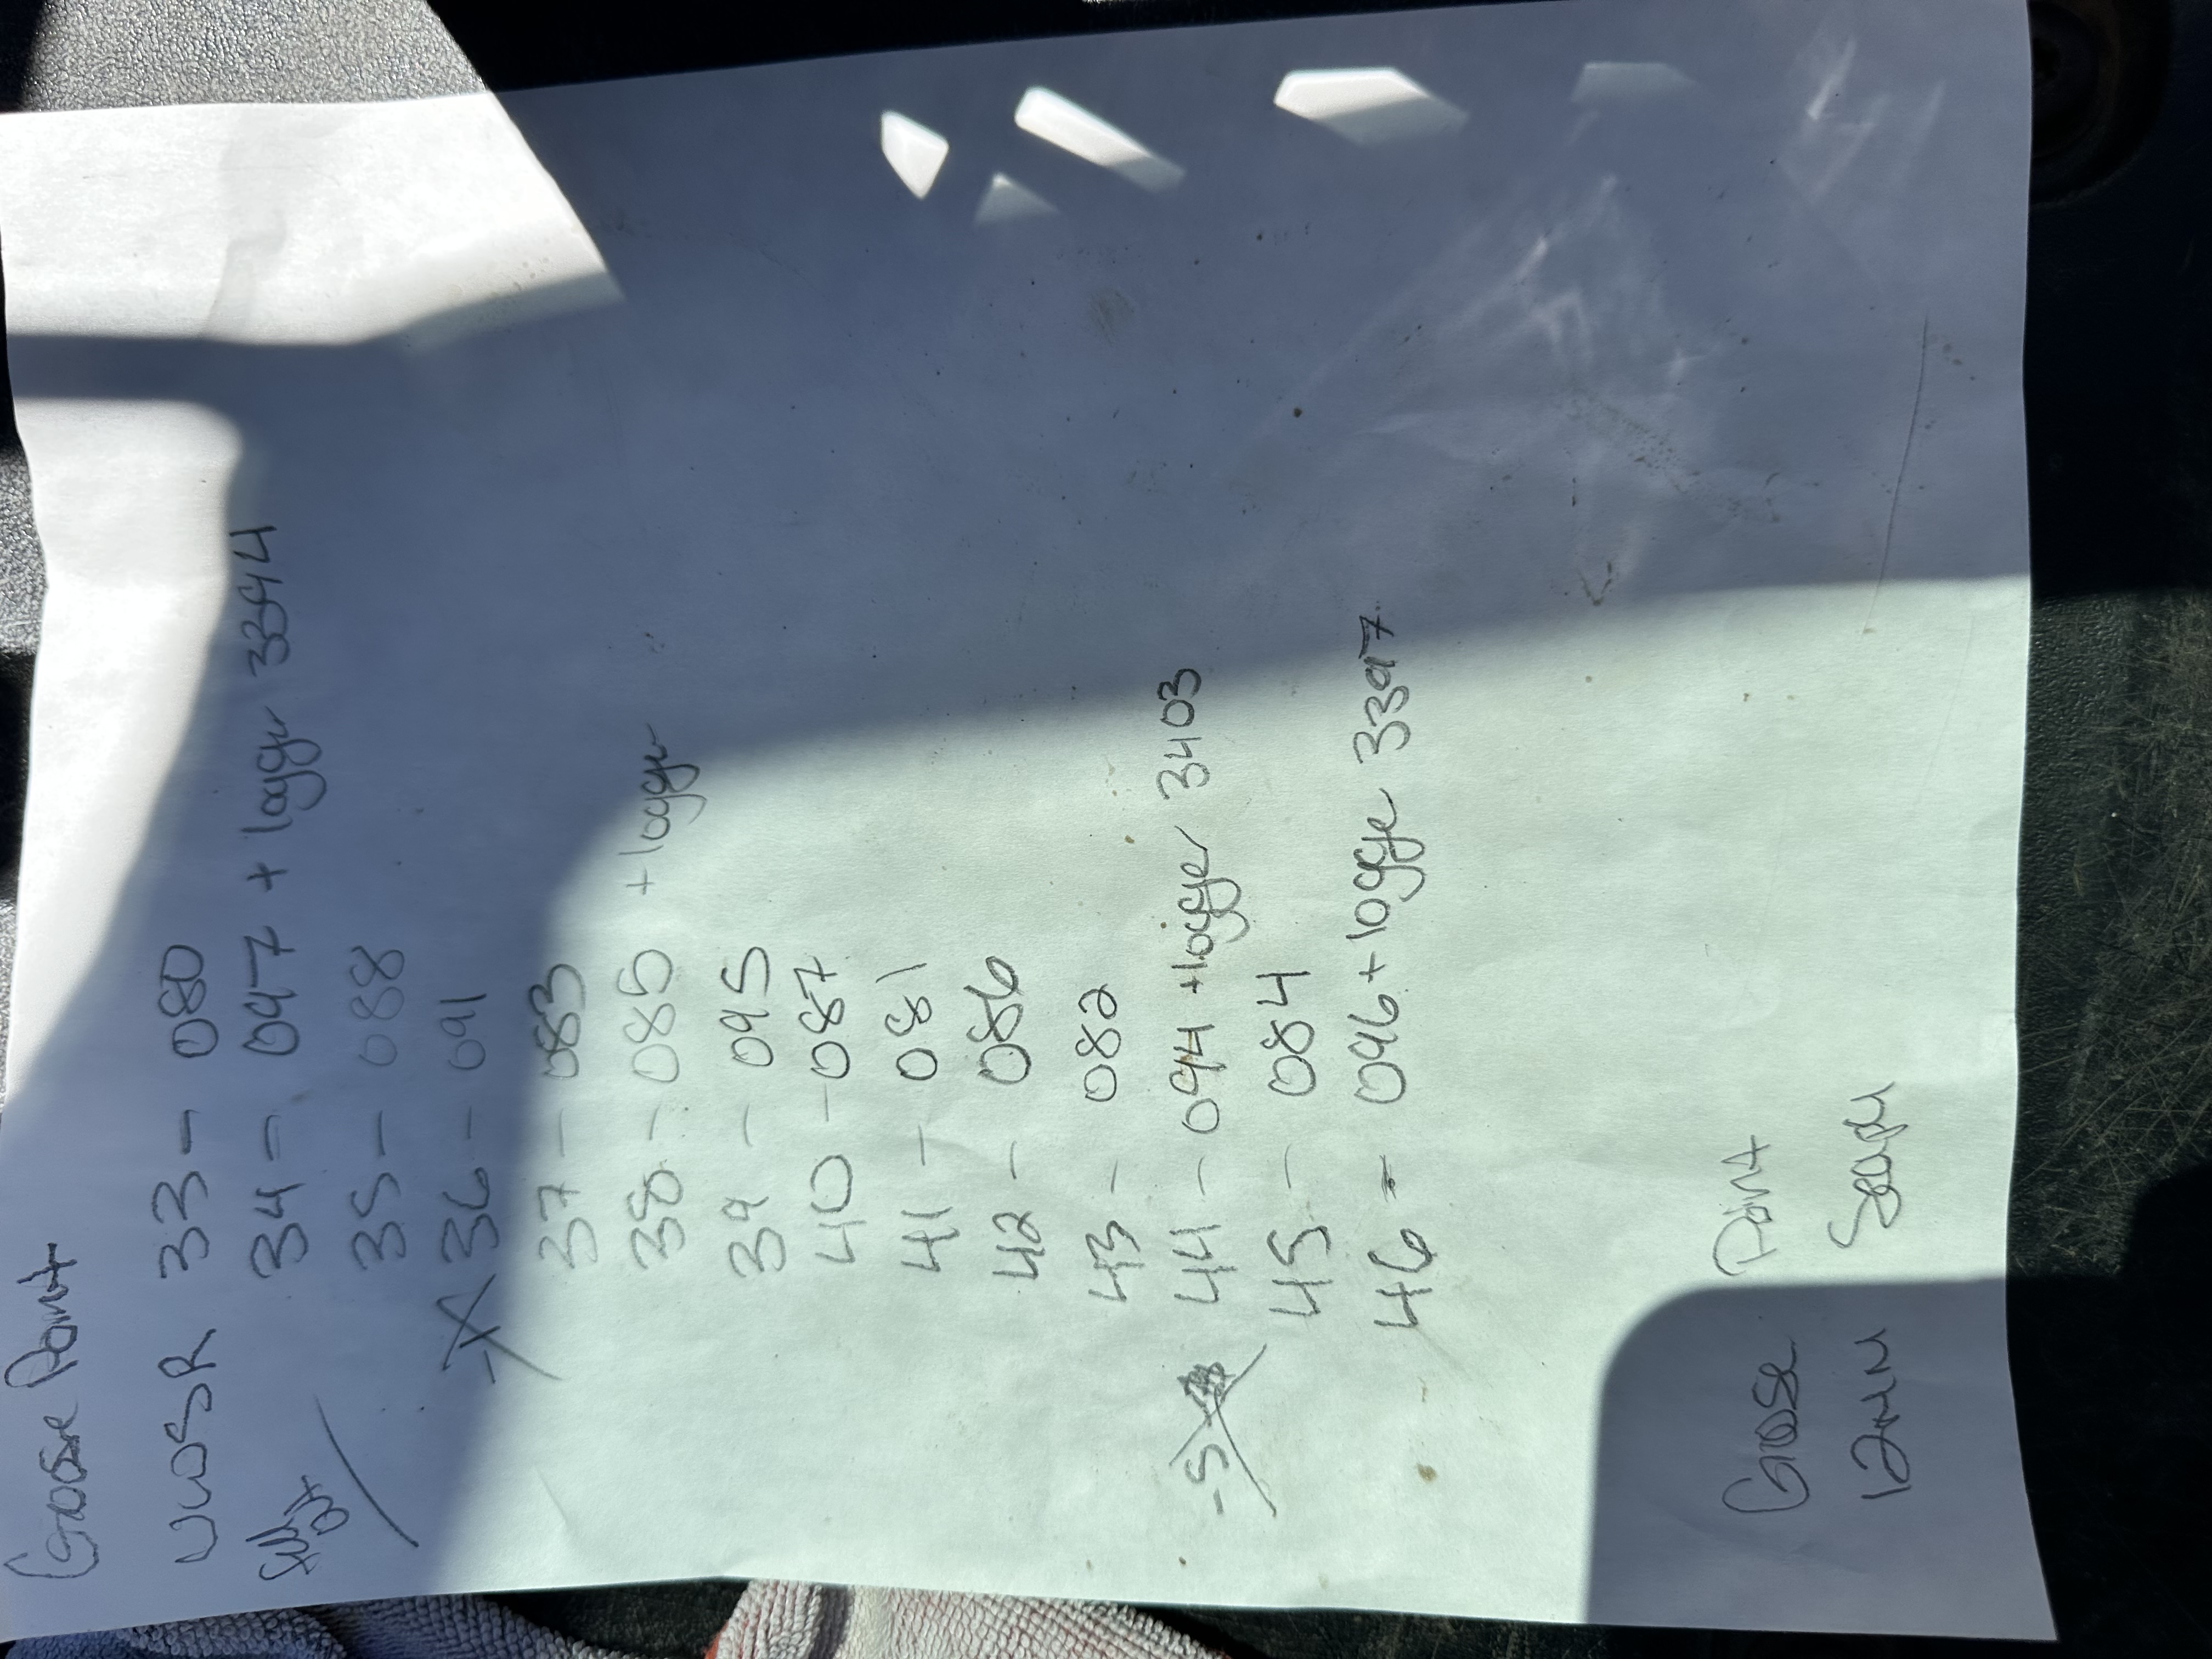 Goose Point
UWSR 33 - 080
fell out
34 - 097 + logger 3394
35 - 088
36 - 091
37 - 083
38 - 085 + logger
39 - 095
40 - 087
41 - 081
42 - 086
43 - 082
44 - 094 + logger 3403
45 - 084
46 - 096 + logge 3397
Goose Point
12MM Seapa